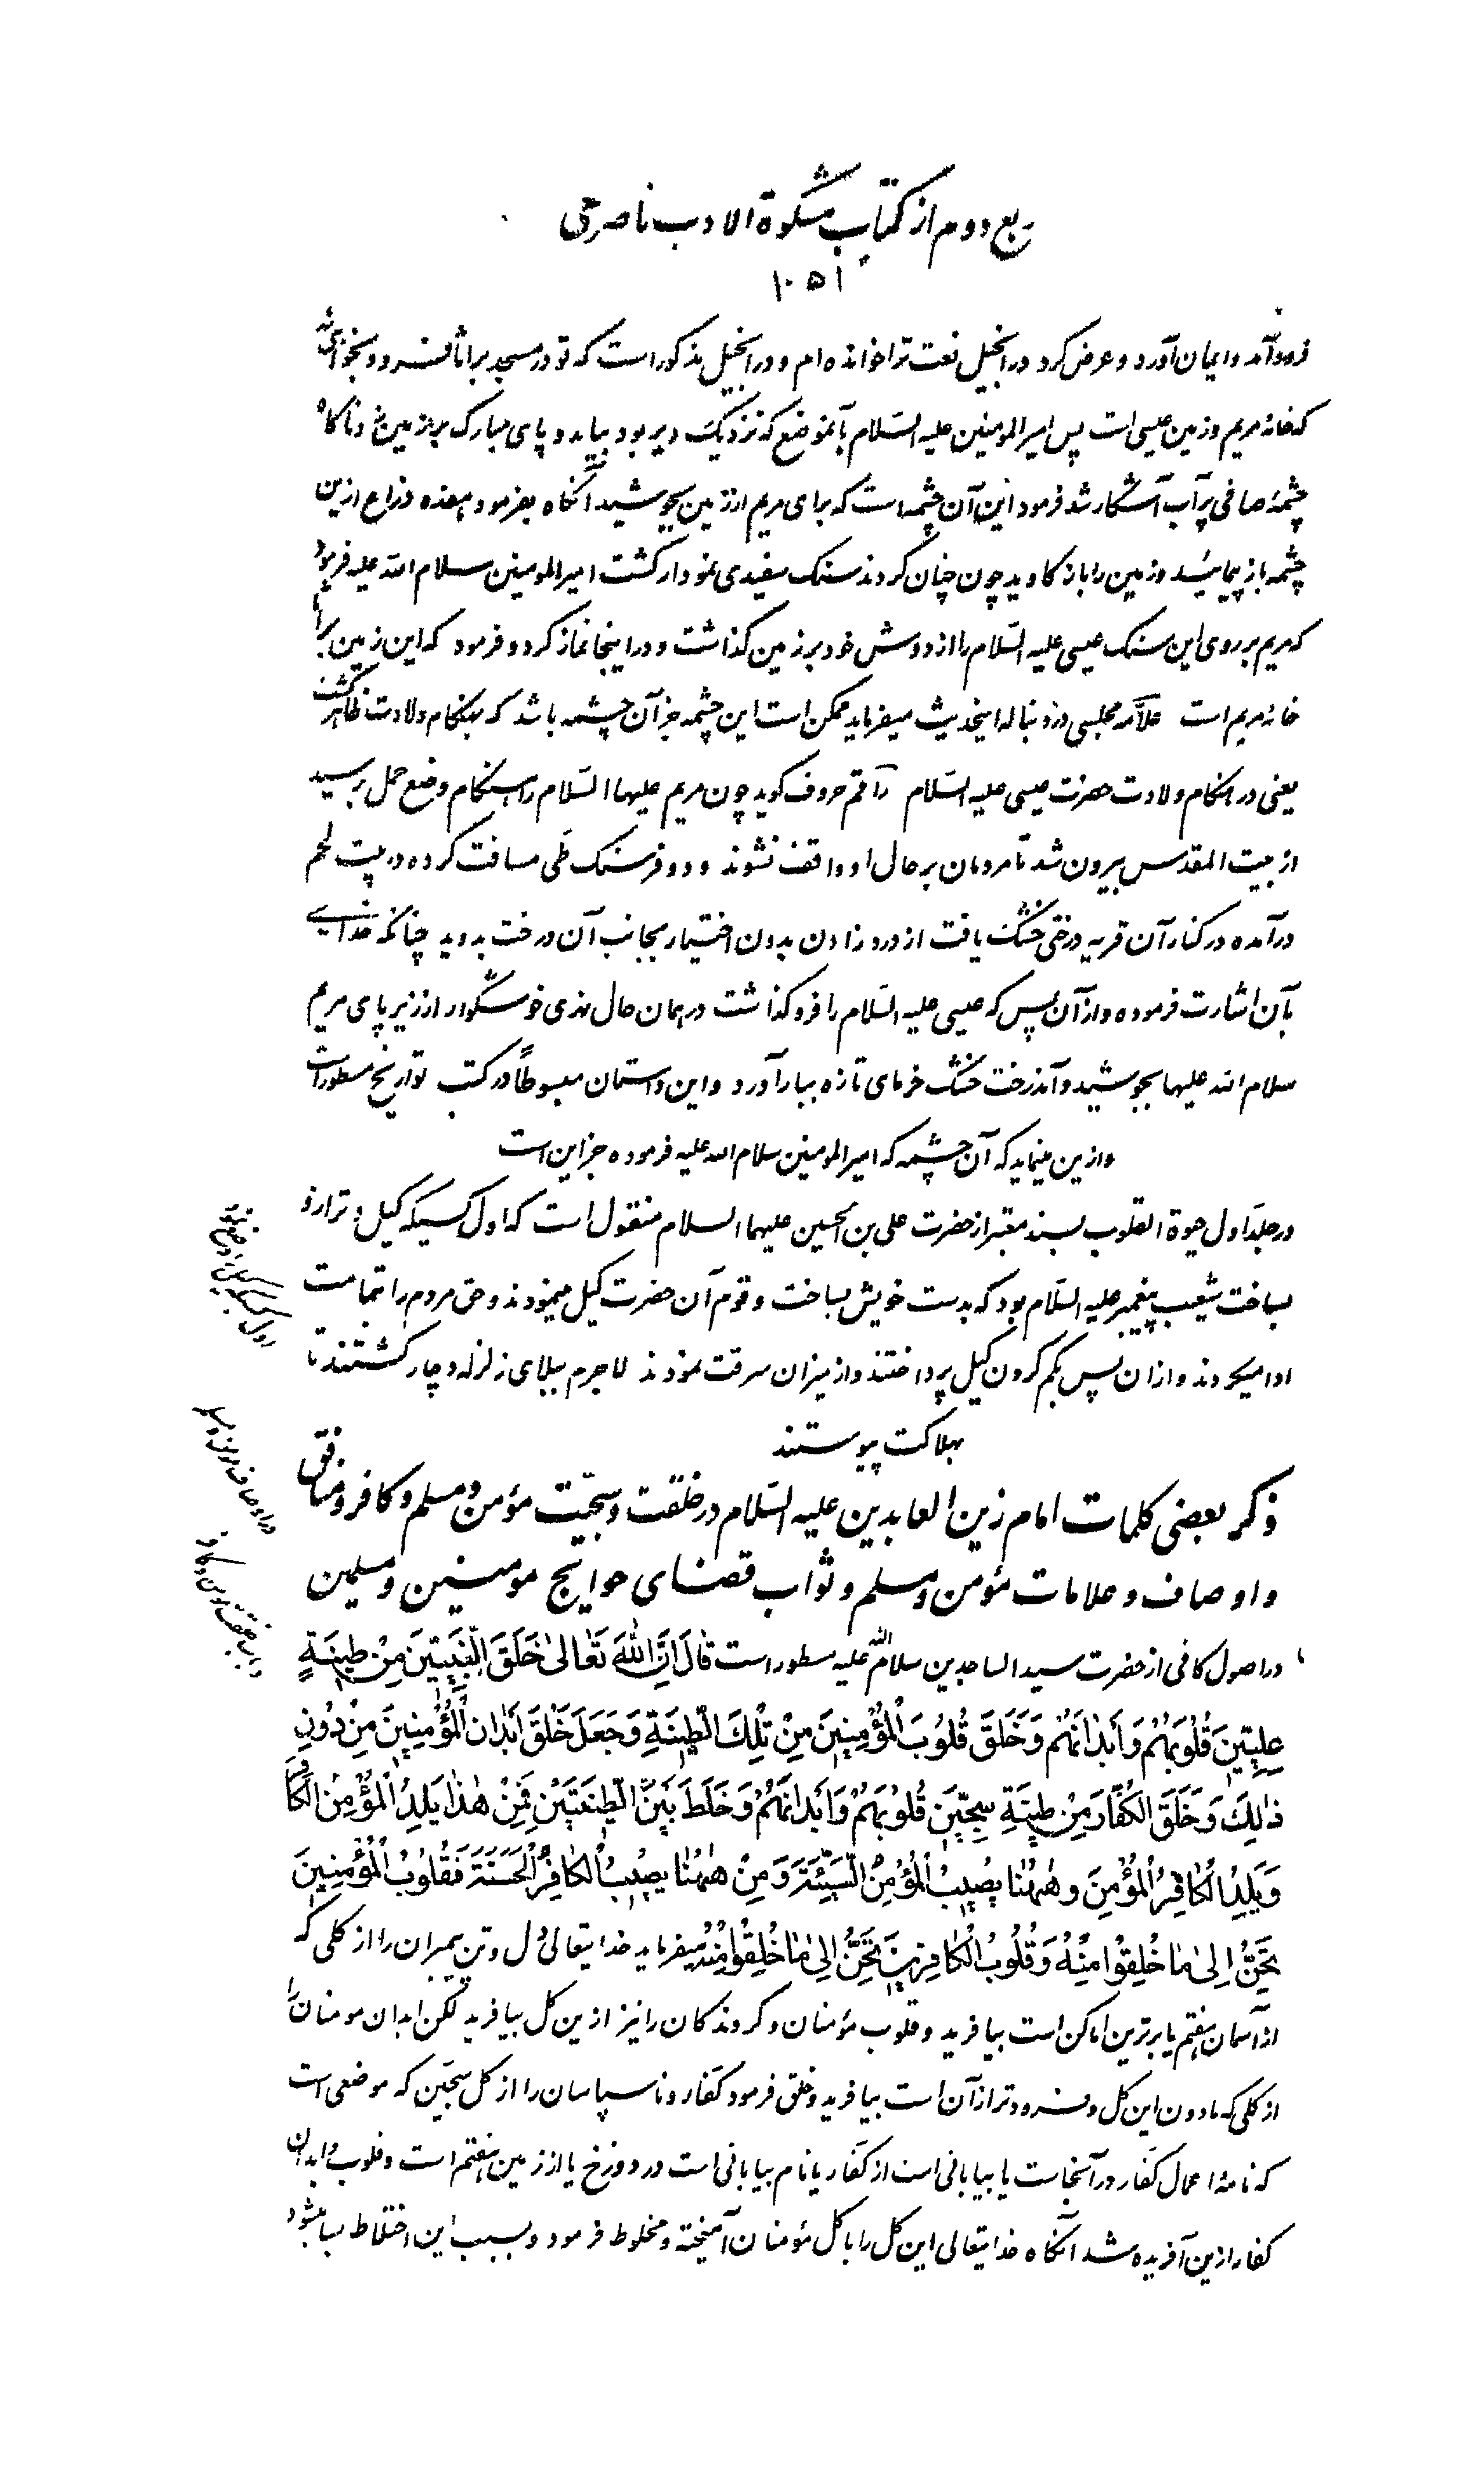 ربع دوم از کتاب مشکوة الادب ناصری
۱۰۵۱
فرود آمد و ایمان آورد و عرض کرد در انجیل نعت ترا خوانده ام و در انجیل مذکور است که تو در مسجد براثا فرود میخواهی شد
که خانهٔ مریم و زمین عیسی است پس امیر المومنین علیه السّلام بآنموضع که نزدیک دیر بود بیامد و پای مبارک بر زمین زد ناگاه
چشمهٔ صافی پر آب آشکار شد فرمود این آن چشمه است که برای مریم از زمین بجوشید آنگاه بفرمود هفده ذراع ازین
چشمه باز پیمائید و زمین را باز کاوید چون چنان کردند سنک سفیدی نمودار گشت امیر المومنین سلام الله علیه فرمود
که مریم بر روی این سنک عیسی علیه السّلام را از دوش خود بر زمین گذاشت و در اینجا نماز کرد و فرمود که این زمین براثا
خانهٔ مریم است علّامه مجلسی در دنباله اینحدیث میفرماید ممکن است این چشمه جز آن چشمه باشد که بهنگام ولادت ظاهر گشت
یعنی در هنگام ولادت حضرت عیسی علیه السّلام راقم حروف گوید چون مریم علیها السّلام را هنگام وضع حمل برسید
از بیت المقدس بیرون شد تا مردمان بر حال او واقف نشوند و دو فرسنک طی مسافت کرده در بیت لحم
درآمده در کنار آن قریه درختی خشک یافت از درد زادن بدون اختیار بجانب آن درخت بدوید چنانکه خدایے
بآن اشارت فرموده و از آن پس که عیسی علیه السّلام را فرو گذاشت در همان حال نهری خوشگوار از زیر پای مریم
سلام الله علیها بجوشید و آندرخت خشک خرمای تازه ببار آورد و این داستان مبسوطاً در کتب تواریخ مسطور است
و ازین مینماید که آن چشمه که امیر المومنین سلام الله علیه فرموده جز این است
در جلد اول حیوة القلوب بسند معتبر از حضرت علی بن الحسین علیهما السلام منقول است که اول کسیکه کیل و ترازو
بساخت شعیب پیغمبر علیه السّلام بود که بدست خویش بساخت و قوم آن حضرت کیل مینمودند و حق مردم را بتمامت
ادا میکردند و از ان پس بکم کردن کیل پرداختند و از میزان سرقت نمودند لا جرم ببلای زلزله دچار گشتند تا
بهلاکت پیوستند
ذکر بعضی کلمات امام زین العابدین علیه السّلام در خلقت و سجیّت مؤمن و مسلم و کافر و منافق
و اوصاف و علامات مؤمن و مسلم و ثواب قضای حوایج مومنین و مسلمین
در اصول کافی از حضرت سید الساجدین سلام الله علیه مسطور است قالَ اِنَّ اللهَ تَعٰالىٰ خَلَقَ النَّبِيّٖنَ مِنْ طِينَةِ
عِلِّيّٖنَ قُلُوبَهُمْ وَأَبْدٰانَهُمْ وَخَلَقَ قُلُوبَ الْمُؤْمِنِينَ مِنْ تِلْكَ الطِّينَةِ وَجَعَلَ خَلْقَ اَبْدٰانِ الْمُؤْمِنِينَ مِنْ دُونِ
ذٰلِكَ وَخَلَقَ الْكُفّٰارَ مِنْ طِينَةِ سِجِّينٍ قُلُوبَهُمْ وَأَبْدٰانَهُمْ وَخَلَطَ بَيْنَ الطّٖينَتَيْنِ فَمِنْ هٰذٰا يَلِدُ الْمُؤْمِنُ الْكٰافِرَ
وَيَلِدُ الْكٰافِرُ الْمُؤْمِنَ وَهٰهُنٰا يُصٖيبُ الْمُؤْمِنُ السَّيِّئَةَ وَمِنْ هٰهُنٰا يُصٖيبُ الْكٰافِرُ الْحَسَنَةَ فَقُلُوبُ الْمُؤْمِنِينَ
تَحِنُّ اِلىٰ مٰا خُلِقُوا مِنْهُ وَقُلُوبُ الْكٰافِرِينَ تَحِنُّ اِلىٰ مٰا خُلِقُوا مِنْهُ میفرماید خدایتعالی دل و تن پیمبران را از گلی که
از آسمان هفتم یا برترین اماکن است بیافرید و قلوب مؤمنان و گروندکان را نیز ازین گل بیافرید لکن ابدان مومنان را
از گلی که مادون این گل و فرودتر از آن است بیافرید و خلق فرمود کفّار و ناسپاسان را از گل سجّین که موضعی است
که نامهٔ اعمال کفّار در آنجاست یا بیابانی است از کفّار یا نام بیابانی است در دوزخ یا از زمین هفتم است و قلوب و ابدان
کفار ازین آفریده شد آنگاه خدایتعالی این گل را با گل مؤمنان آمیخته و مخلوط فرمود و بسبب این اختلاط بسا میشود